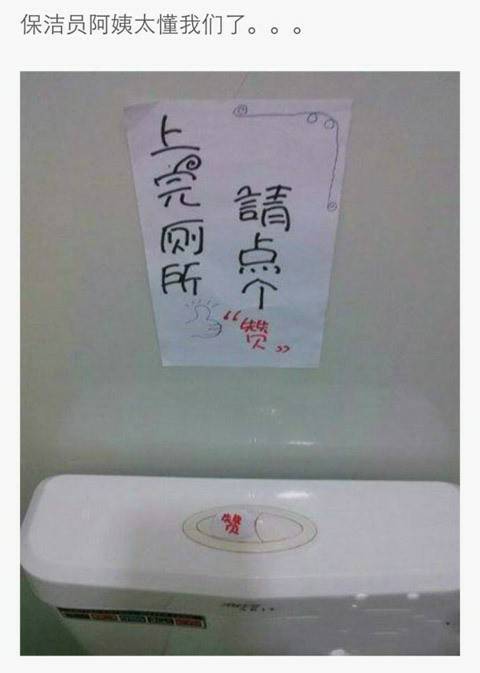 保洁员阿姨太懂我们了。。。
上完厕所
請点个
“赞”
赞